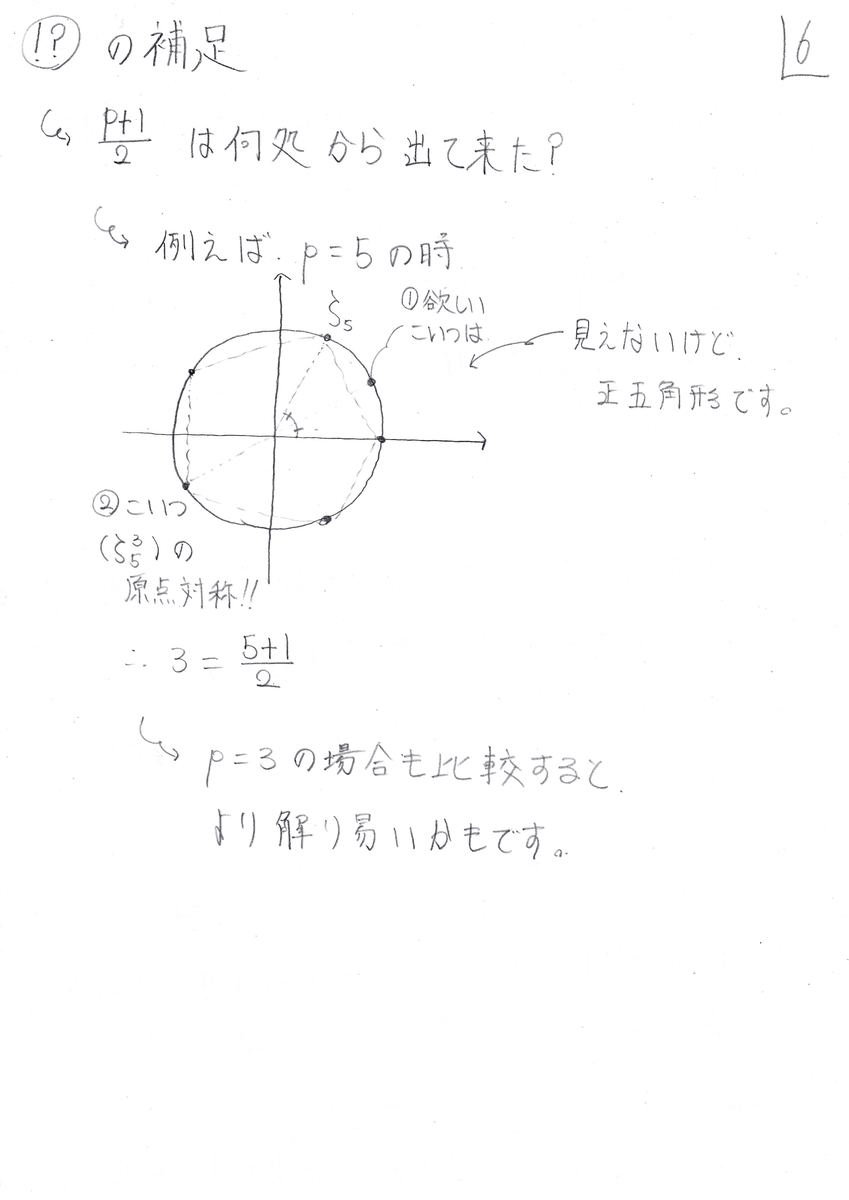 !? の補足
6
↳ p+1/2 は何処から出て来た?
↳ 例えば、p=5の時
ζ₅
①欲しい
こいつは
見えないけど、
正五角形です。
②こいつ
(ζ₅³)の
原点対称!!
∴ 3 = 5+1/2
↳ p=3の場合も比較すると、
より解り易いかもです。